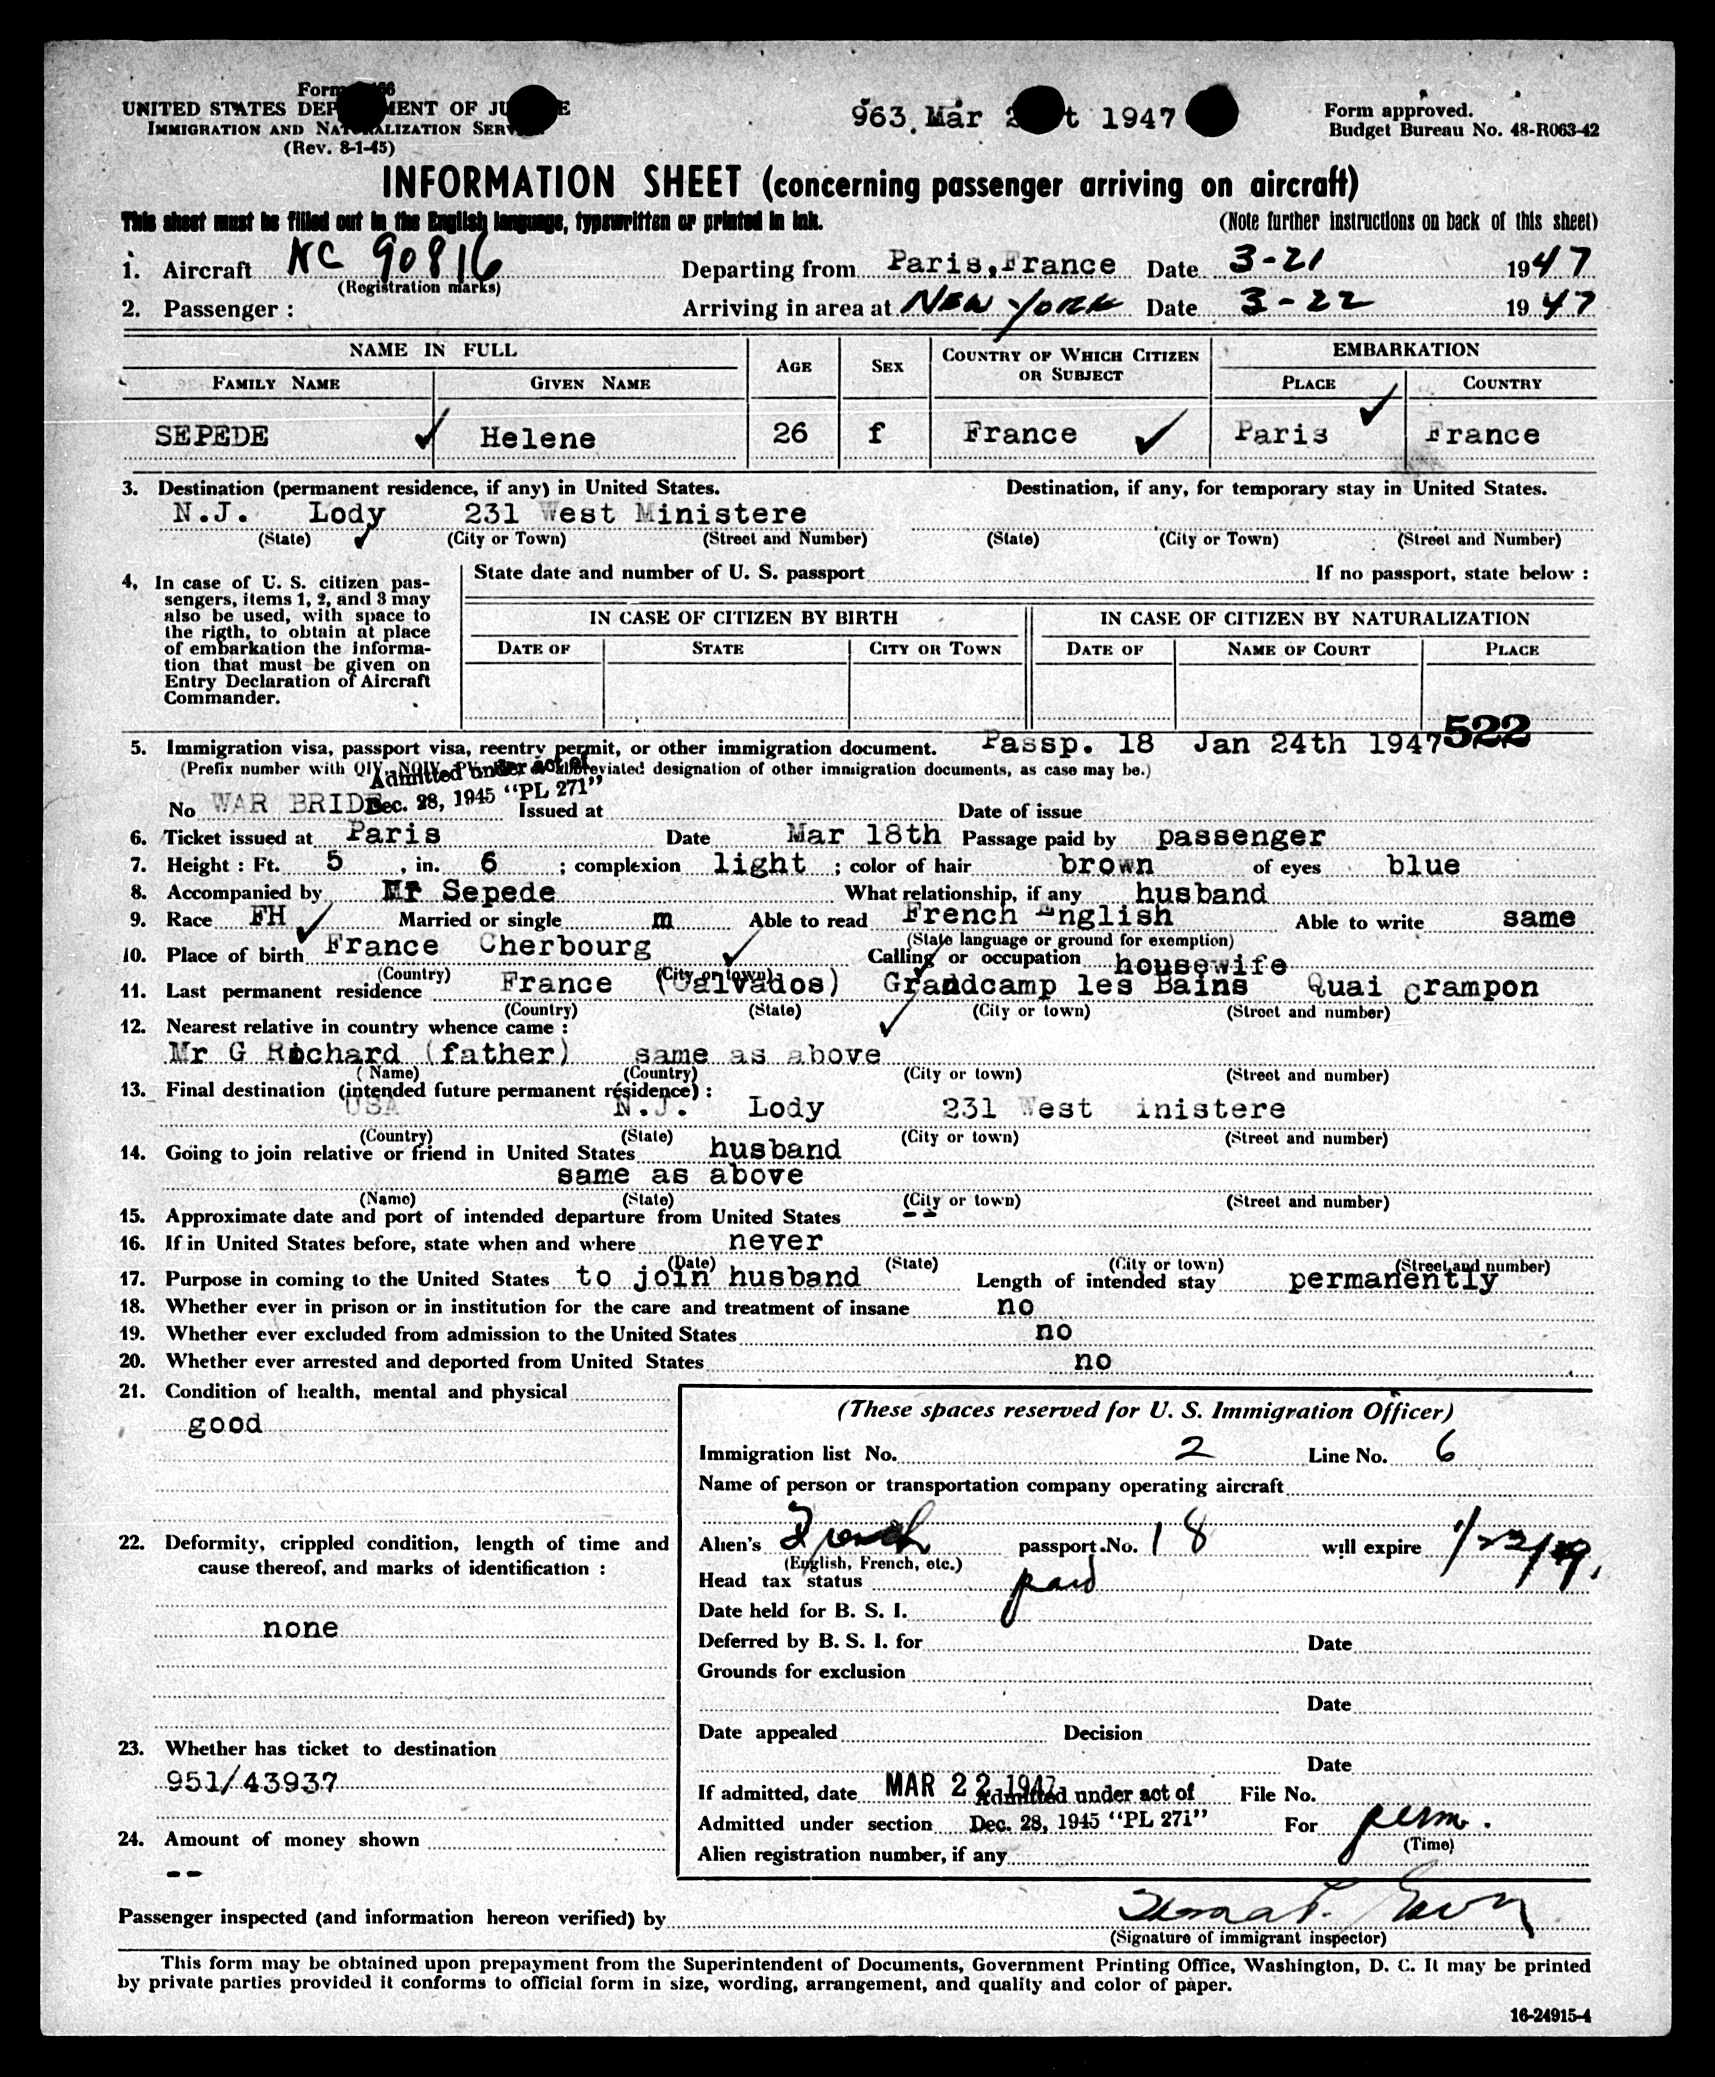 UNITED STATES DEP MENT OF JU E
IMMIGRATION AND NATURALIZATION SERV
(Rev. 8-1-45)
963. Mar 1947
Form approved.
Budget Bureau No. 48-R063-42
INFORMATION SHEET (concerning passenger arriving on aircraft)
This sheet must be filled out in the English language, typewritten or printed in ink.
(Note further instructions on back of this sheet)
1. Aircraft NC 90816 Departing from Paris, France Date 3-21 1947
(Registration marks)
2. Passenger : Arriving in area at NEW YORK Date 3-22 1947
NAME IN FULL AGE SEX COUNTRY OF WHICH CITIZEN OR SUBJECT EMBARKATION
FAMILY NAME GIVEN NAME PLACE COUNTRY
SEPEDE Helene 26 f France Paris France
3. Destination (permanent residence, if any) in United States. Destination, if any, for temporary stay in United States.
N.J. Lody 231 West Ministere
(State) (City or Town) (Street and Number) (State) (City or Town) (Street and Number)
4, In case of U. S. citizen pas-
sengers, items 1, 2, and 3 may
also be used, with space to
the rigth, to obtain at place
of embarkation the informa-
tion that must be given on
Entry Declaration of Aircraft
Commander.
State date and number of U. S. passport If no passport, state below :
IN CASE OF CITIZEN BY BIRTH IN CASE OF CITIZEN BY NATURALIZATION
DATE OF STATE CITY OR TOWN DATE OF NAME OF COURT PLACE
522
5. Immigration visa, passport visa, reentry permit, or other immigration document. Passp. 18 Jan 24th 1947
(Prefix number with QIV, NQIV, PV, abbreviated designation of other immigration documents, as case may be.)
Admitted under act of
Dec. 28, 1945 "PL 271"
No WAR BRIDE Issued at Date of issue
6. Ticket issued at Paris Date Mar 18th Passage paid by passenger
7. Height : Ft. 5 , in. 6 ; complexion light ; color of hair brown of eyes blue
8. Accompanied by Mr Sepede What relationship, if any husband
9. Race FH Married or single m Able to read French English Able to write same
(State language or ground for exemption)
10. Place of birth France Cherbourg Calling or occupation housewife
(Country) (City or town)
11. Last permanent residence France (Calvados) Grandcamp les Bains Quai Crampon
(Country) (State) (City or town) (Street and number)
12. Nearest relative in country whence came :
Mr G Richard (father) same as above
(Name) (Country) (City or town) (Street and number)
13. Final destination (intended future permanent résidence) :
USA N.J. Lody 231 West inistere
(Country) (State) (City or town) (Street and number)
14. Going to join relative or friend in United States husband
same as above
(Name) (State) (City or town) (Street and number)
15. Approximate date and port of intended departure from United States --
16. If in United States before, state when and where never
(Date) (State) (City or town) (Street and number)
17. Purpose in coming to the United States to join husband Length of intended stay permanently
18. Whether ever in prison or in institution for the care and treatment of insane no
19. Whether ever excluded from admission to the United States no
20. Whether ever arrested and deported from United States no
21. Condition of health, mental and physical
good
22. Deformity, crippled condition, length of time and
cause thereof, and marks of identification :
none
23. Whether has ticket to destination
951/43937
24. Amount of money shown
--
(These spaces reserved for U. S. Immigration Officer)
Immigration list No. 2 Line No. 6
Name of person or transportation company operating aircraft
Alien's French passport No. 18 will expire
(English, French, etc.)
Head tax status paid
Date held for B. S. I.
Deferred by B. S. I. for Date
Grounds for exclusion
Date
Date appealed Decision
Date
If admitted, date MAR 22 1947 File No.
Admitted under act of
Admitted under section Dec. 28, 1945 "PL 271" For perm.
(Time)
Alien registration number, if any
Passenger inspected (and information hereon verified) by
(Signature of immigrant inspector)
This form may be obtained upon prepayment from the Superintendent of Documents, Government Printing Office, Washington, D. C. It may be printed
by private parties provided it conforms to official form in size, wording, arrangement, and quality and color of paper.
16-24915-4